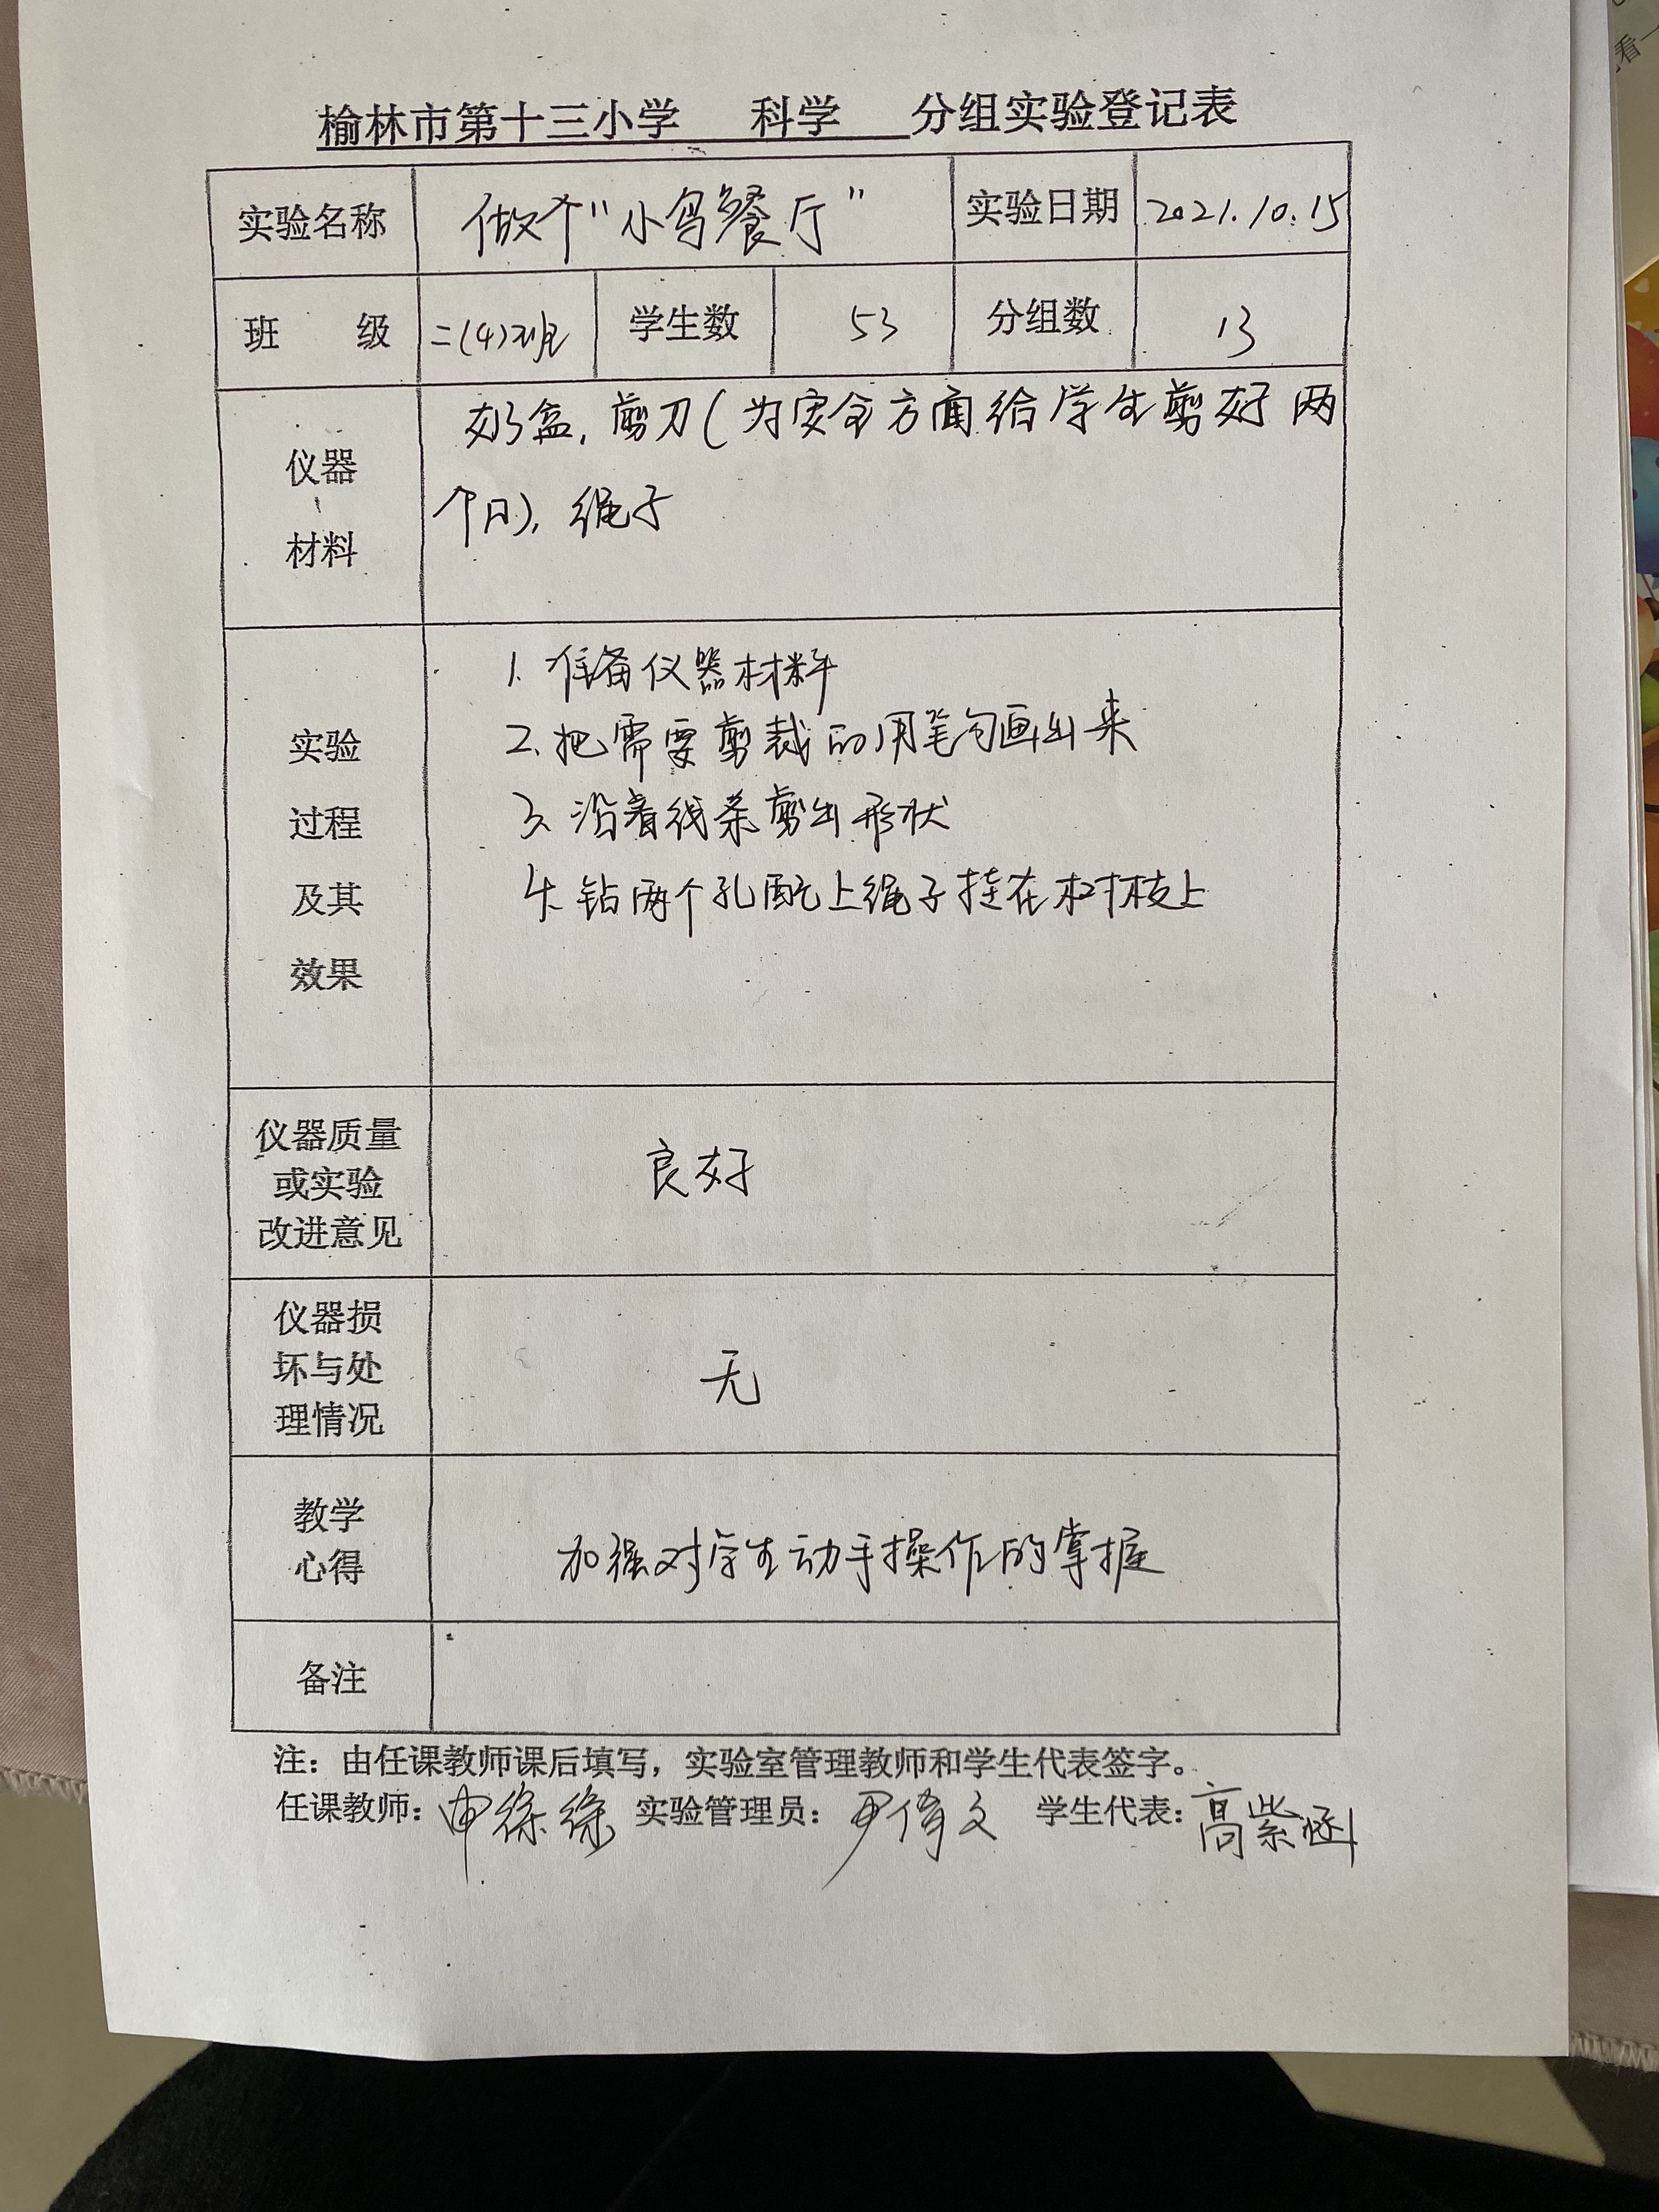 榆林市第十三小学 科学 分组实验登记表
实验名称 做个“小鸟餐厅” 实验日期 2021.10.15
班 级 二(4)班 学生数 53 分组数 13
仪器 材料
奶盒，剪刀(为安全方面给学生剪好两
个口)，绳子
实验 过程 及其 效果
1. 准备仪器材料
2. 把需要剪裁的用笔勾画出来
3. 沿着线条剪出形状
4. 钻两个孔配上绳子挂在树枝上
仪器质量 或实验 改进意见
良好
仪器损 坏与处 理情况
无
教学 心得
加强对学生动手操作的掌握
备注
注：由任课教师课后填写，实验室管理教师和学生代表签字。
任课教师：申徐徐 实验管理员：尹倩文 学生代表：高紫涵
看一